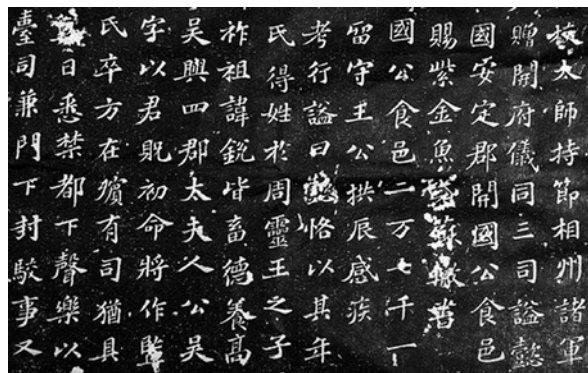 太師持節相州諸軍
贈開府儀同三司謚懿
國安定郡開國公食邑
賜紫金魚袋蘇轍
國公食邑二万七千一
留守王公拱辰感疾
考行謚曰懿恪以其年
氏得姓於周靈王之子
祚祖諱銳皆畜德養高
吳興四郡太夫人公吳
字以君貺初命將作監
氏卒方在殯有司猶具
日悉禁都下聲樂以
臺司兼門下封駁事又